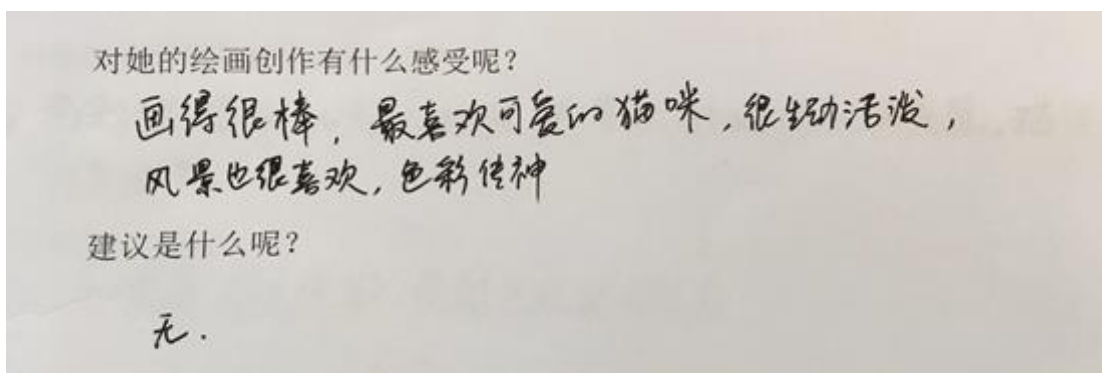 对她的绘画创作有什么感受呢？
画得很棒，最喜欢可爱的猫咪，很生动活泼，
风景也很喜欢，色彩传神
建议是什么呢？
无.